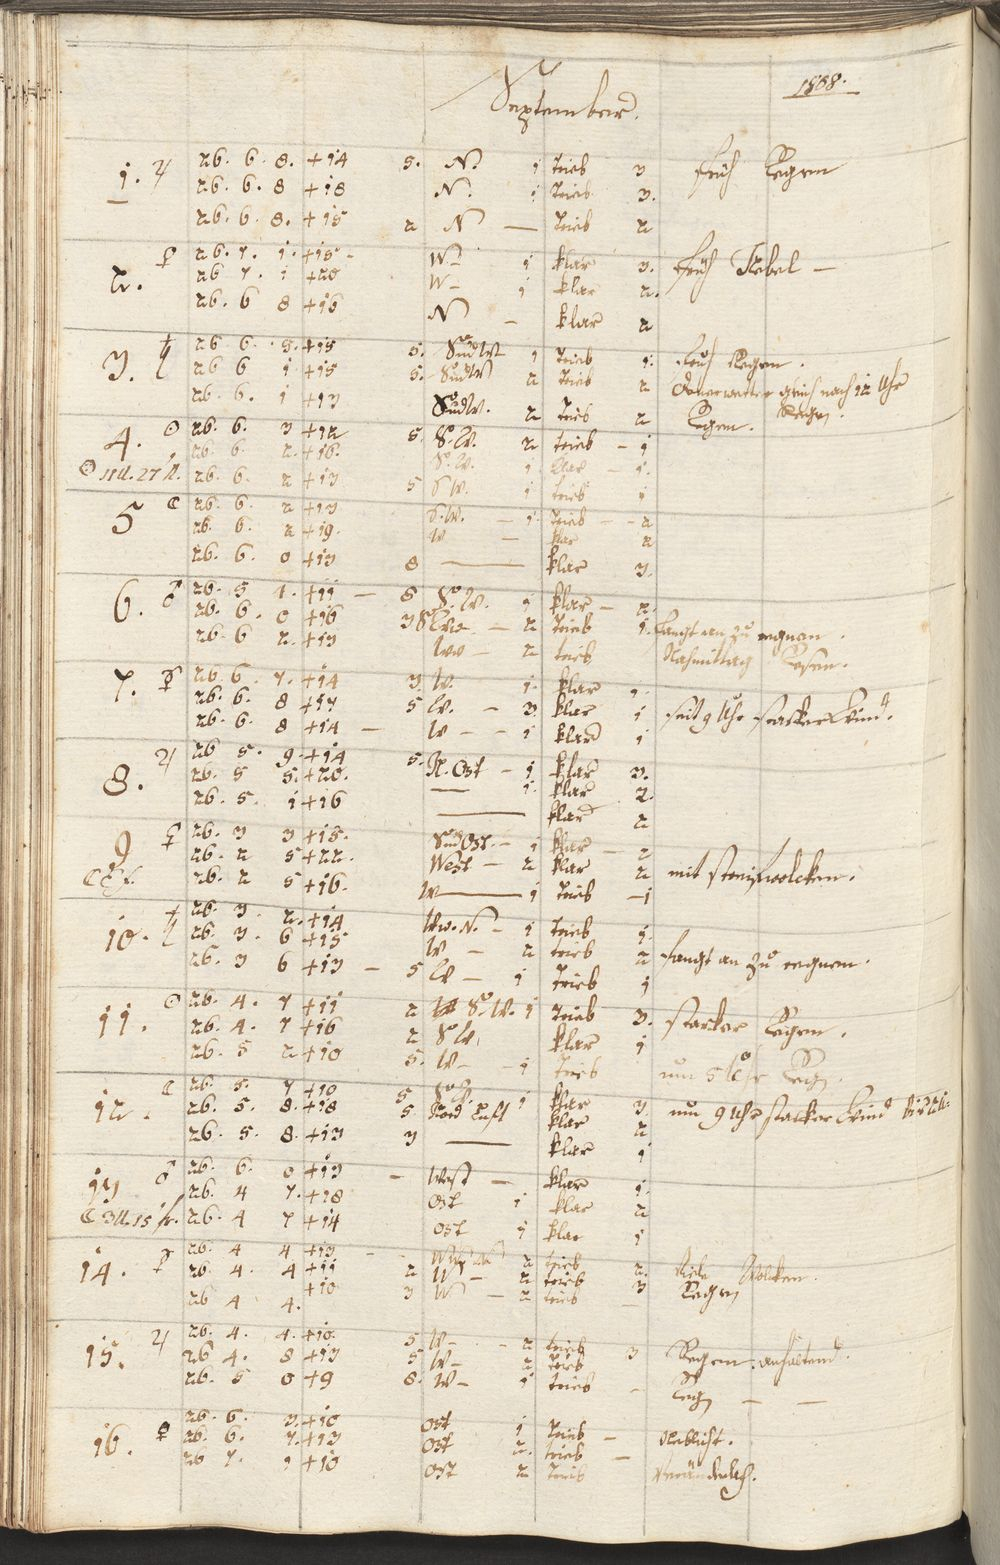 1808.
September.
1. ♃ 26. 6. 8. +14 5. N. 1 trieb 3 früh Regen
26. 6. 8 +18 N. 1 trieb. 3.
26. 6. 8. +15 2 N — trieb 2
2. ♀ 26. 7. 1. +15 - W- 1 klar 3. früh Nebel —
26 7. 1 +20 W- 1 klar 2.
26. 6 8 +16 N - klar 2
3. ♄ 26 6. 5. +15 5. SüdW 1 trieb 1. früh Regen.
26 6 1 +15 5. SüdW 2 trieb 2 Donerwetter gleich nach 12 Uhr
26. 6. 1 +13 SüdW. 2 trieb 2 Regen. Regen.
4. ☉ 26. 6. 3 +12 5. S. W. 2 trieb - 1
26. 6. 2. +16. S. W. 1 klar - 1.
11 U. 27 26. 6. 2 +13 5 S W. 1 trieb 1
5 ☾ 26. 6. 2 +13 S. W. - 1. trieb - - 2
26. 6. 2 +19. W - klar 2
26. 6. 0 +13 8 — klar 3.
6. ♂ 26. 5 1. +11 - 8 S. W. 1 klar - 2.
26. 6. 0 +16 3 - 2 trieb 1. fangt an zu regnen.
26. 6 2. +13 W - 2 trieb Nachmittag Regen.
7. ☿ 26. 6. 7. +14 3 W. 1. klar 1.
26. 6. 8 +17 5 W. - 3. klar 1 seit 9 Uhr starker Wind.
26. 6. 8 +14 - W - - 1 klar 1
8. ♃ 26 5. 9. +14 5. N. Ost - 1 klar 3.
26. 5 5. +20. — 1. klar 2.
26. 5. 1 +16 — klar 2
9 ♀ 26. 3 3 +15. SüdOst. - 1 klar - 2
26. 2 5 +22. West - 2 klar 2 mit streifwolcken.
26. 2 5 +16. W — 1 trieb -1
10. ♄ 26. 3. 2. +14 W. N. - 1 trieb 1.
26. 3. 6 +15 W - 2 trieb 2 fangt an zu regnen.
26. 3 6 +13 - 5 W - 1 trieb 1
11. ☉ 26. 4. 7 +11 2 S. W. 1 trieb 3. starcker Regen.
26. 4. 7 +16 2 S W. klar 1
26. 5 2 +10 5. W- - 1 trieb um 5 Uhr Reg.
12. ☾ 26. 5. 7 +10 5 1 klar 3. um 9 Uhr starker Wind
26. 5. 8. +18 5 Nord Luft klar 2
26. 5. 8. +13 3 — klar 1
13 ♂ 26. 6. 0 +13 - West - klar 1.
26. 4 7. +18 Ost 1 klar 2
☾ 3 U. 15 26. 4 7 +14 Ost 1 klar 1
14. ☿ 26. 4 4 +13 - 2 trieb 2. Viele Wolcken.
26. 4. 4 +11 2 W - 2 trieb 3 Regen
26 4 4. +10 3 W - 2 trieb -
15. ♃ 26. 4. 4. +10. 5 W- - 2 trieb 3 Regen. anhaltend.
26 4. 8 +13 5 W- 2 trieb
26. 5 0 +9 8. W- 1 trieb - Reg — —
16. ♀ 26. 6. 3. +10 Ost 1 trieb - Neblicht.
26. 6. 7. +13 Ost 2. trieb -
26 7. 1 +10 Ost 2 trieb Veränderlich.